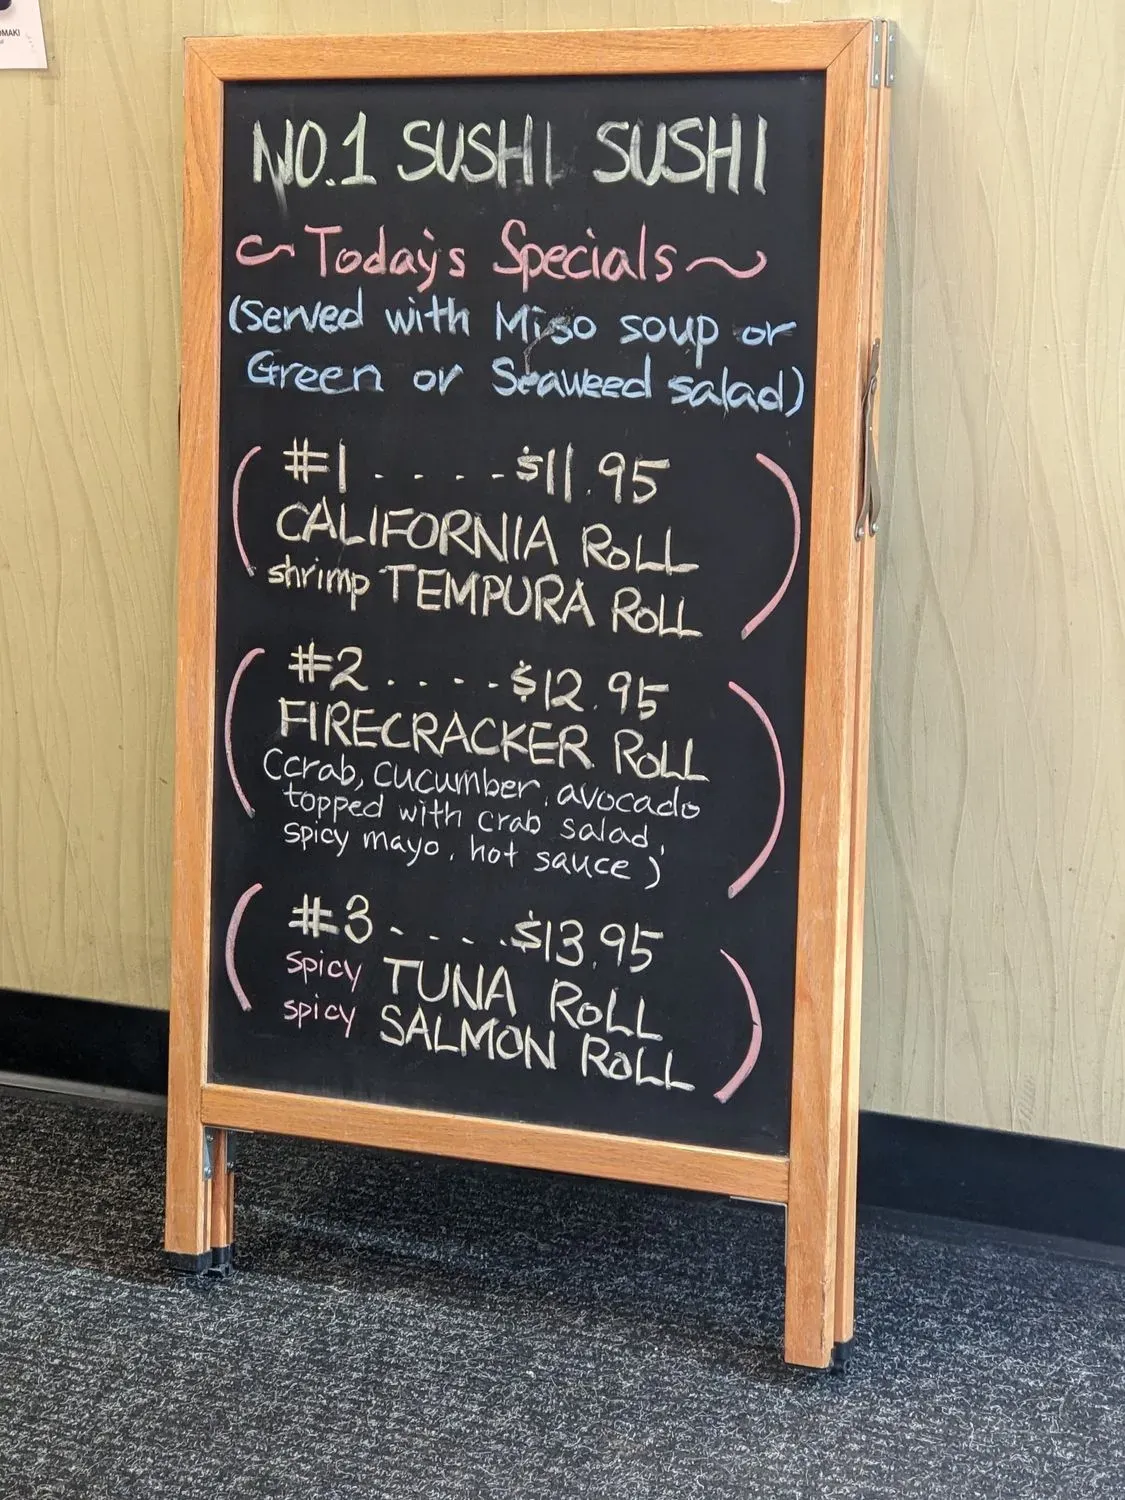 OMAKI
NO.1 SUSHI SUSHI
~ Today's Specials ~
(Served with Miso soup or
Green or Seaweed salad)
#1 . . . . - $11.95
CALIFORNIA ROLL
shrimp TEMPURA ROLL
#2 . . . . - $12.95
FIRECRACKER ROLL
(crab, cucumber, avocado
topped with crab salad,
spicy mayo, hot sauce)
#3 - . . . . $13.95
spicy TUNA ROLL
spicy SALMON ROLL